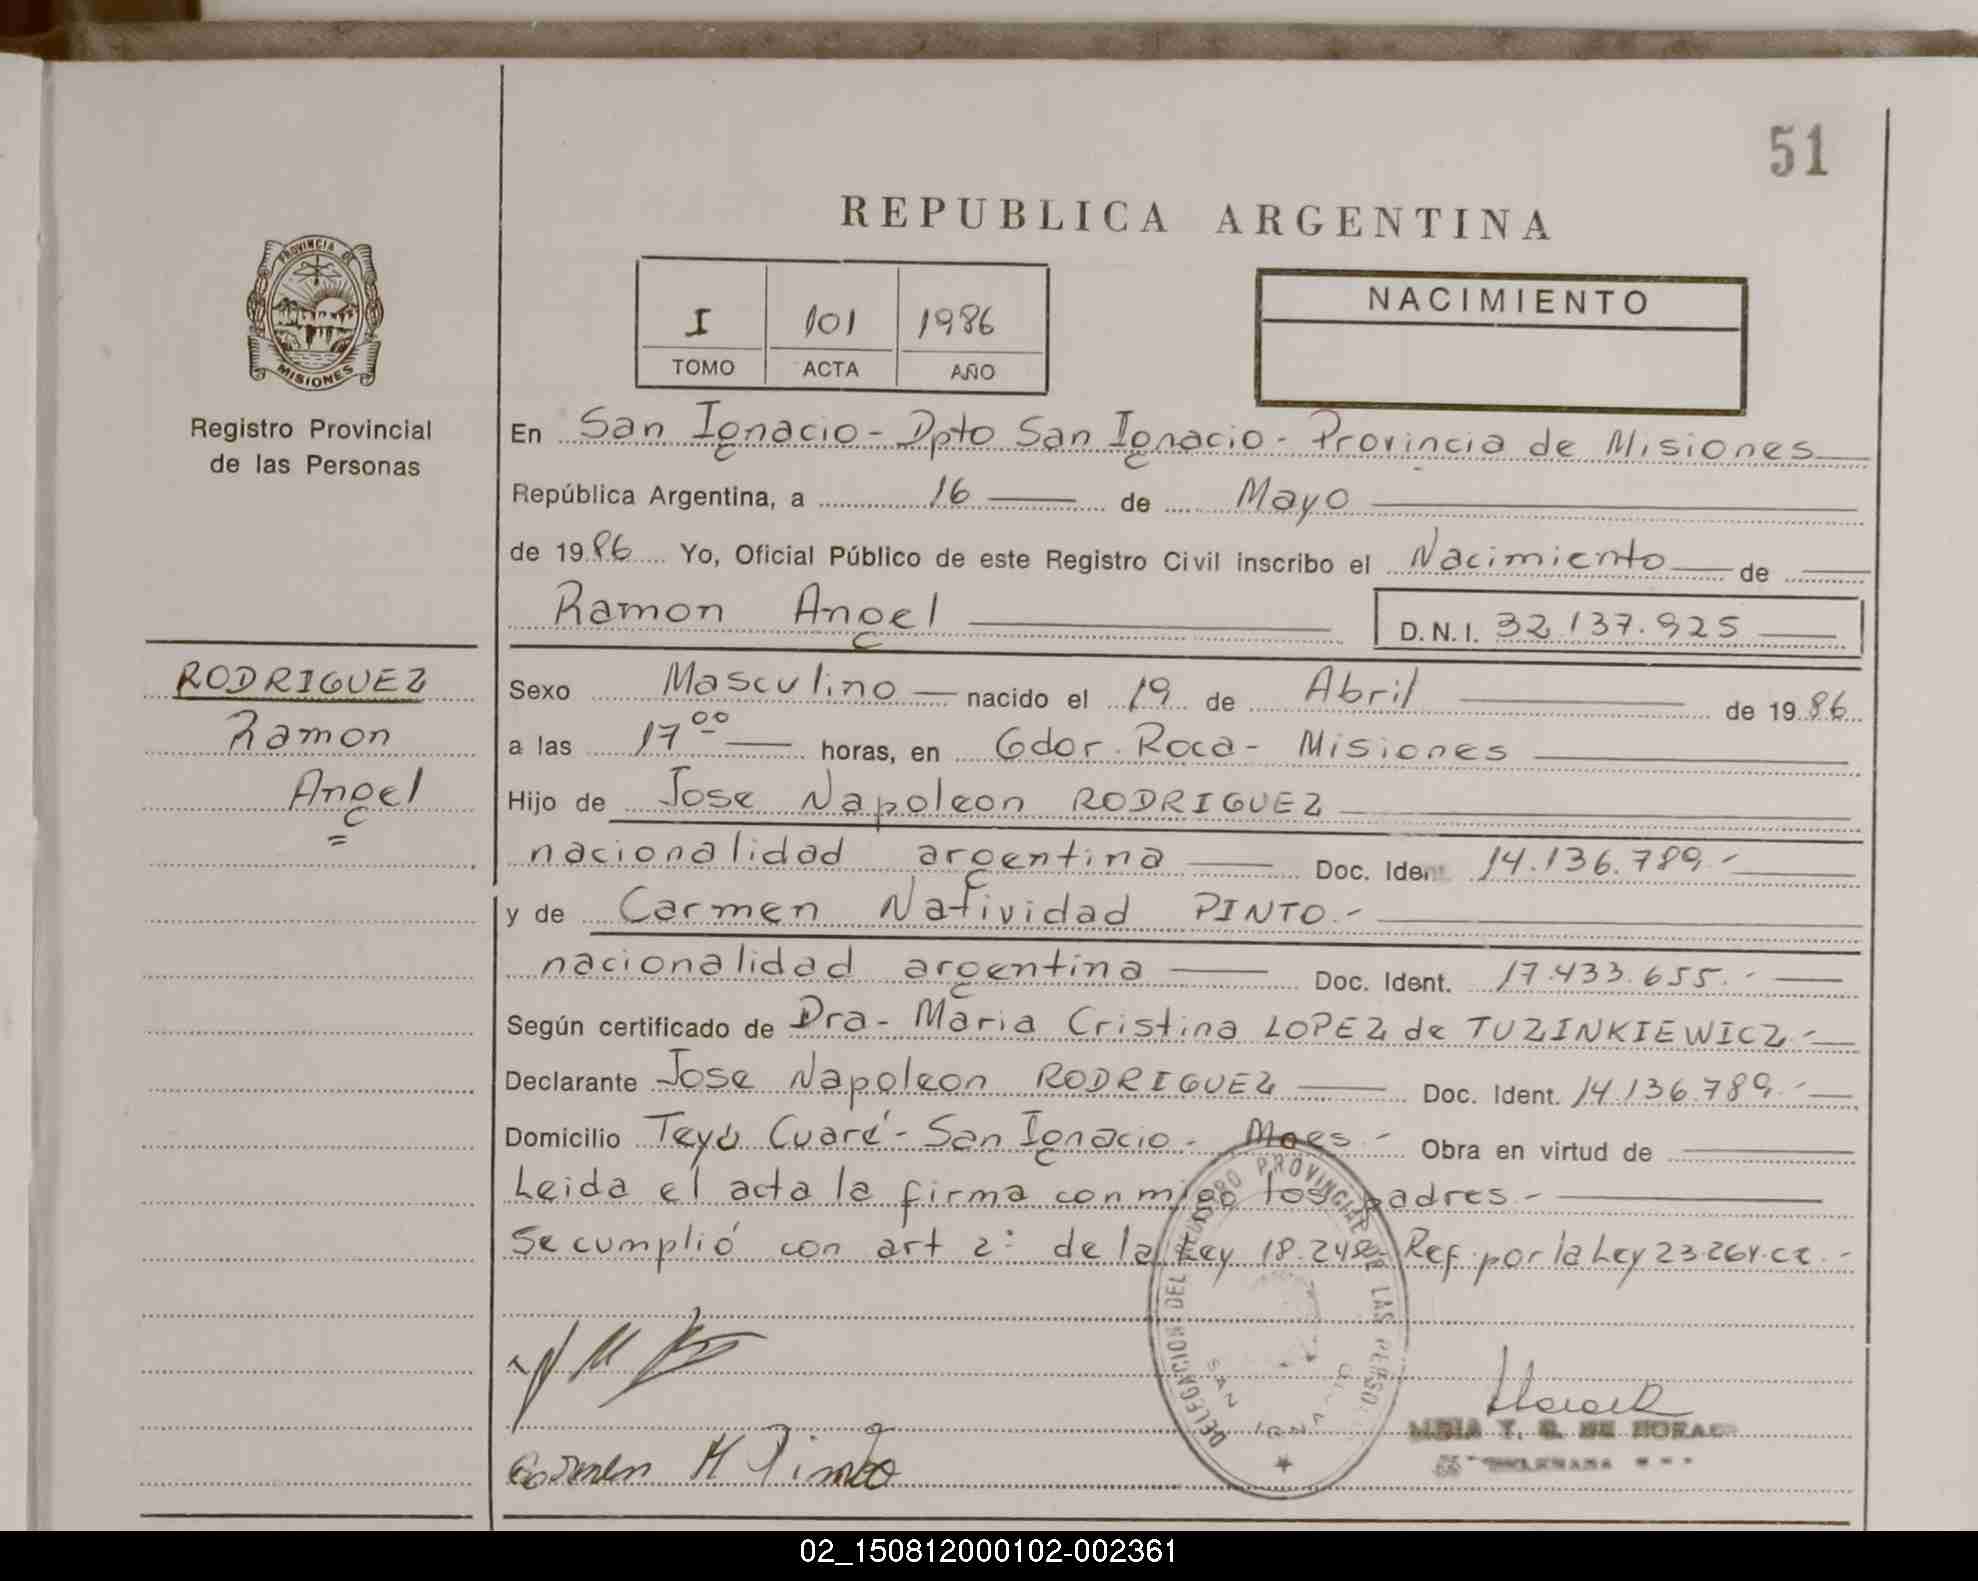 51
REPUBLICA ARGENTINA
PROVINCIA DE
MISIONES
Registro Provincial
de las Personas
I 101 1986
TOMO ACTA AÑO
NACIMIENTO
En San Ignacio - Dpto San Ignacio - Provincia de Misiones
República Argentina, a 16 de Mayo
de 1986 Yo, Oficial Público de este Registro Civil inscribo el Nacimiento de
Ramon Angel D.N.I. 32.137.925
RODRIGUEZ
Ramon
Angel
Sexo Masculino nacido el 19 de Abril de 1986
a las 17 00 horas, en Gdor. Roca - Misiones
Hijo de Jose Napoleon RODRIGUEZ
nacionalidad argentina Doc. Ident. 14.136.789.-
y de Carmen Natividad PINTO.-
nacionalidad argentina Doc. Ident. 17.433.655.-
Según certificado de Dra - Maria Cristina LOPEZ de TUZINKIEWICZ.-
Declarante Jose Napoleon RODRIGUEZ Doc. Ident. 14.136.789.-
Domicilio Teyú Cuaré - San Ignacio - Mnes.- Obra en virtud de
Leida el acta la firma conmigo los padres.-
Se cumplió con art 2: de la Ley 18.248- Ref. por la Ley 23.264.cc.-
DELEGACION DEL REGISTRO PROVINCIAL DE LAS PERSO
SAN IGNACIO
Carmen N Pinto
02_150812000102-002361